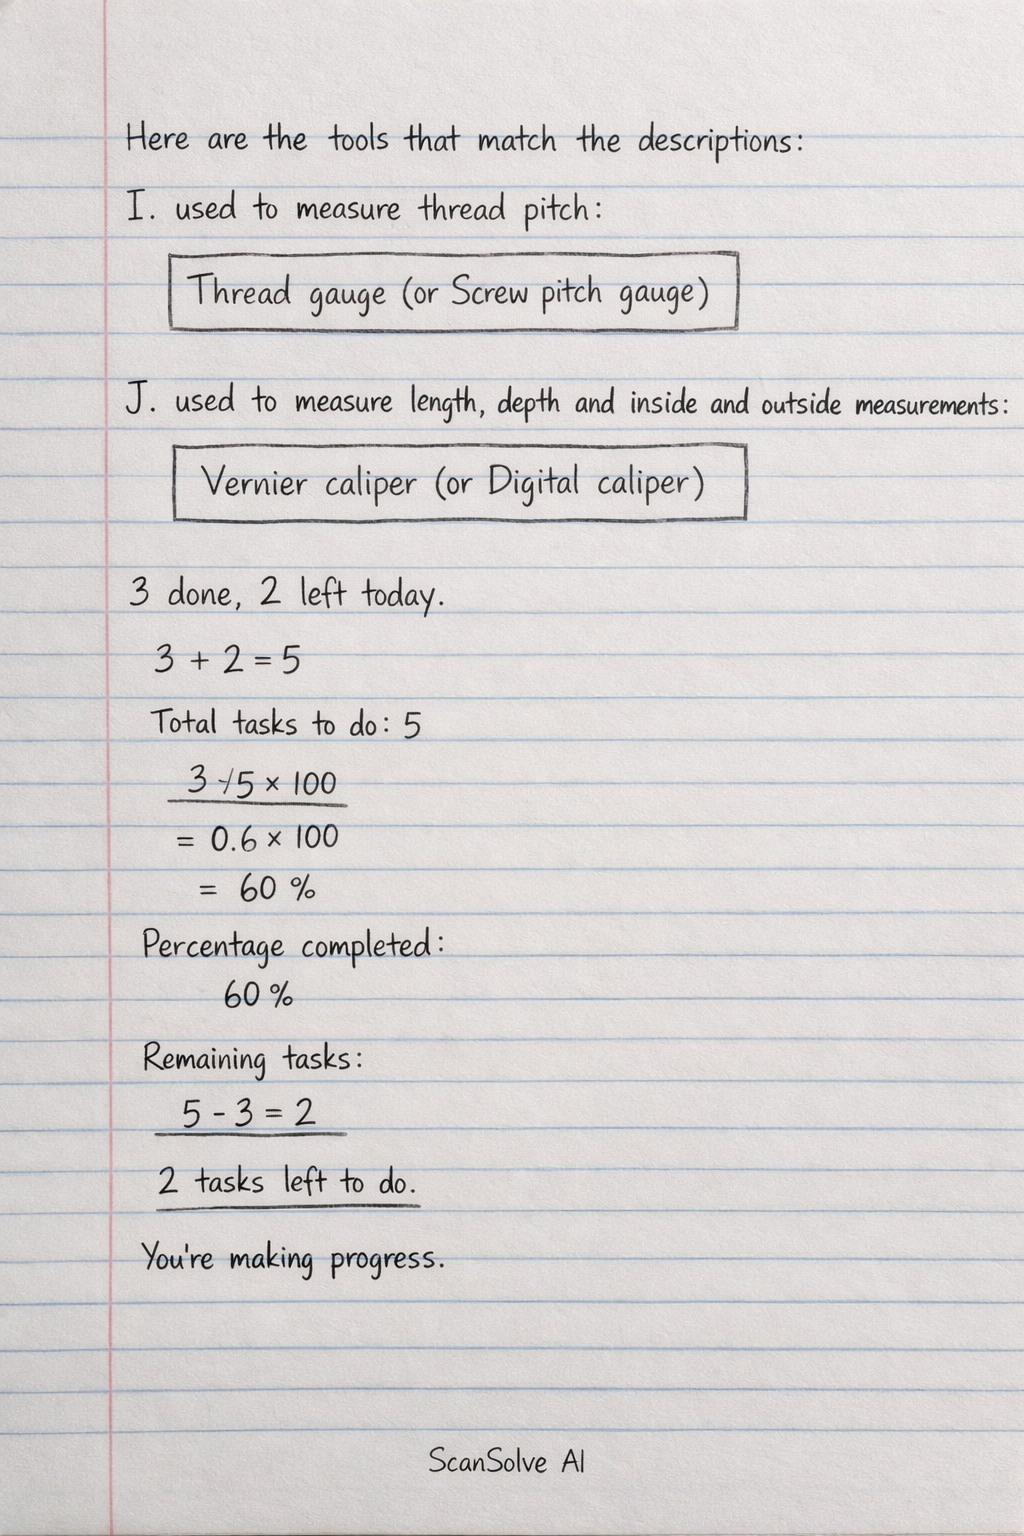 Here are the tools that match the descriptions:
I. used to measure thread pitch:
Thread gauge (or Screw pitch gauge)
J. used to measure length, depth and inside and outside measurements:
Vernier caliper (or Digital caliper)
3 done, 2 left today.
3 + 2 = 5
Total tasks to do: 5
3 /5 × 100
= 0.6 × 100
= 60 %
Percentage completed:
60 %
Remaining tasks:
5 - 3 = 2
2 tasks left to do.
You're making progress.
ScanSolve AI